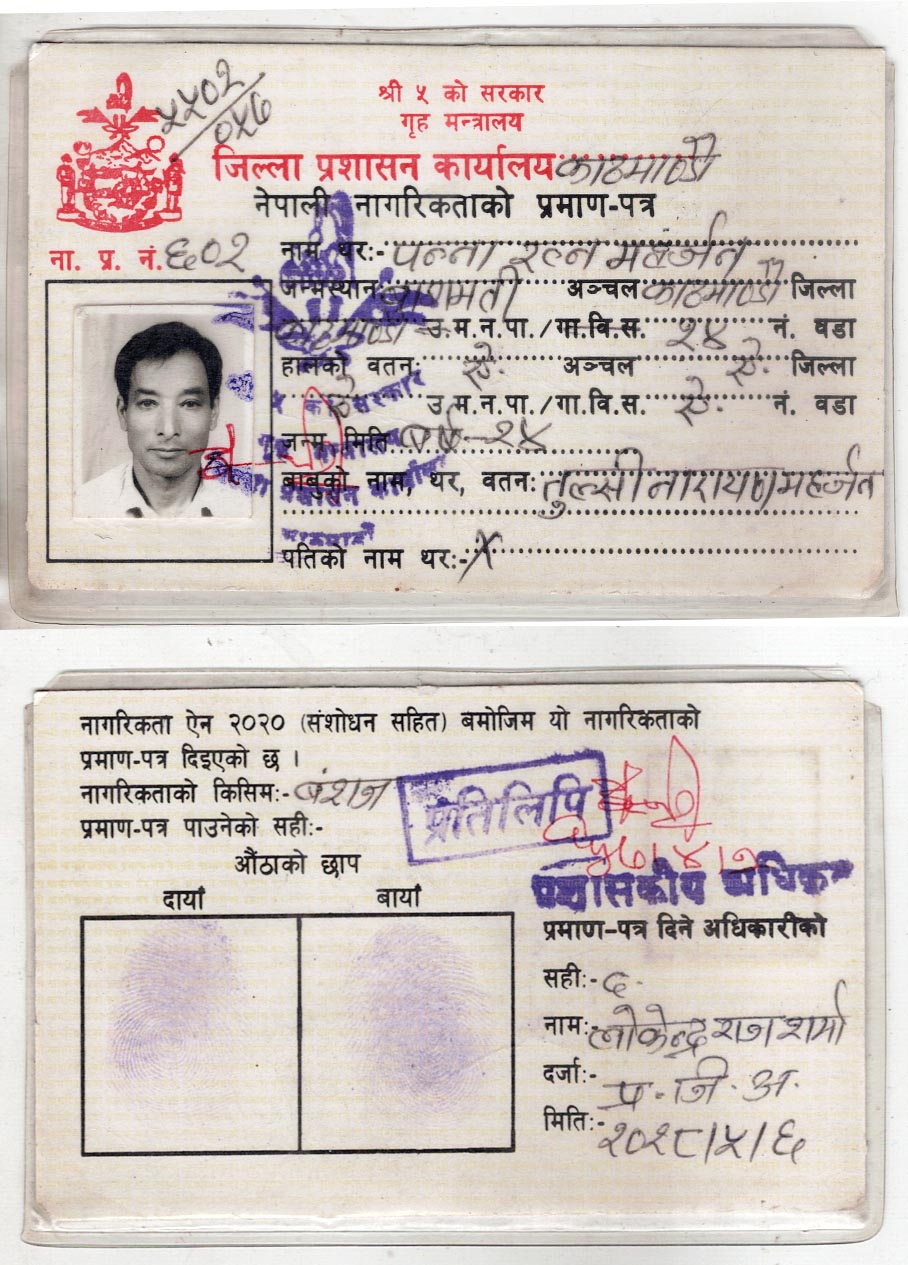 ५५०२/०५७
श्री ५ को सरकार
गृह मन्त्रालय
जिल्ला प्रशासन कार्यालय काठमाण्डौ
नेपाली नागरिकताको प्रमाण-पत्र
ना. प्र. नं. ६०२
नाम थर:- पन्ना रत्न महर्जन
जन्मस्थान बागमती अञ्चल काठमाण्डौ जिल्ला
काठमाण्डौ उ.म.न.पा./गा.वि.स. २४ नं. वडा
हालको वतन: ऐ. अञ्चल ऐ. जिल्ला
ऐ. उ.म.न.पा./गा.वि.स. ऐ. नं. वडा
जन्म मिति वर्ष-२४
बाबुको नाम, थर, वतन: तुल्सी नारायण महर्जन
पतिको नाम थर:- X
नागरिकता ऐन २०२० (संशोधन सहित) बमोजिम यो नागरिकताको
प्रमाण-पत्र दिइएको छ ।
नागरिकताको किसिम:- बंशज
प्रतिलिपि
प्रमाण-पत्र पाउनेको सही:-
औंठाको छाप
दायाँ बायाँ
प्रशासकीय अधिकृत
प्रमाण-पत्र दिने अधिकारीको
सही:- द.
नाम:- लोकेन्द्र राज शर्मा
दर्जा:- प्र. जि. अ.
मिति:- २०२८/५/६